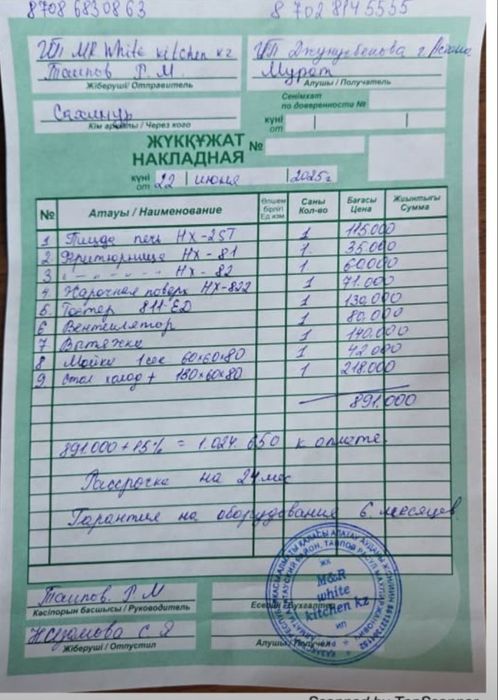 8708 6830863 8 702 8145555
ИП MR White kitchen kz ИП Джунусбекова г. Астана
Таипов Р.М. Мурат
Жіберуші/ Отправитель Алушы / Получатель
Сенімхат
по доверенности №
Кім арқылы / Через кого күні
от
ЖҮКҚҰЖАТ
НАКЛАДНАЯ №
күні
от 22 июня 2025г.
№ Атауы / Наименование Өлшем бірлігі Ед.изм. Саны Кол-во Бағасы Цена Жиынтығы Сумма
1 Пицца печь HX-2ST 1 115.000
2 Фритюрница HX-81 1. 35.000
3 -"- -"- HX-82 1 60000
4. Жарочная поверх HX-822 1 71.000
5. Тостер 811-ED 1 130.000
6 Вентилятор 1 80.000
7 Вытяжка 1 140.000
8 Мойка 1 сек 60×60×80 1 42000
9 Стол холод + 180×60×80 1 218.000
891.000
891.000+15% = 1.024.650 к оплате.
Рассрочка на 24 мес
Гарантия на оборудования 6 месяцев
Таипов. Р.М
Кәсіпорын басшысы / Руководитель Есепші / Бухгалтер
С Я
Жіберуші / Отпустил Алушы / Получил
ЖК
M&R
white
kitchen kz
ИП